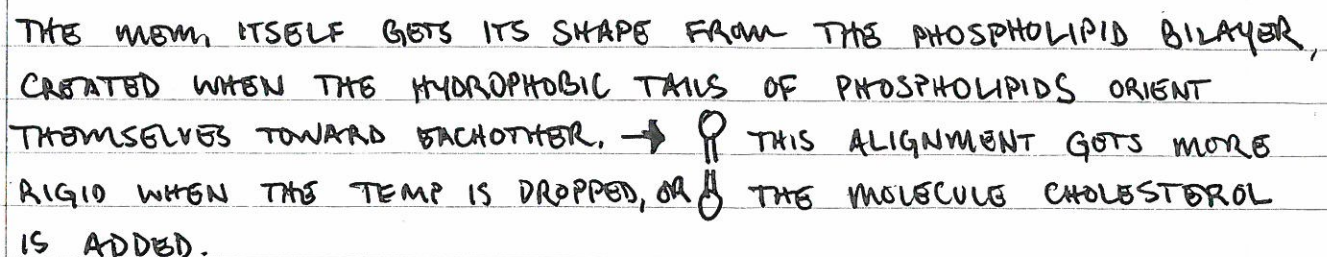 THE MEM. ITSELF GETS ITS SHAPE FROM THE PHOSPHOLIPID BILAYER,
CREATED WHEN THE HYDROPHOBIC TAILS OF PHOSPHOLIPIDS ORIENT
THEMSELVES TOWARD EACHOTHER. → THIS ALIGNMENT GETS MORE
RIGID WHEN THE TEMP IS DROPPED, OR THE MOLECULE CHOLESTEROL
IS ADDED.